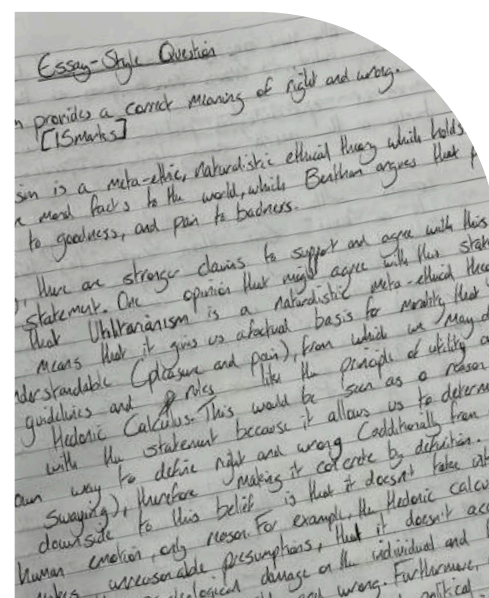 Essay-Style Question
n provides a correct meaning of right and wrong.
[15 marks]
sm is a meta-ethic, naturalistic ethical theory which holds
moral facts to the world, while Bentham argues that
to goodness, and pain to badness.
there are stronger claims to support and agree with this
statement. One opinion that might agree with this state
that Utilitarianism is a naturalistic meta-ethical theo
means that it gives us a factual basis for morality that
nderstandable (pleasure and pain), from which we may d
guidelines and rules like the principle of utility
Hedonic Calculus. This would be seen as a reason
with the statement because it allows us to determ
own way to define right and wrong (additionally from
swaying), therefore making it concrete by definition.
downside to this belief is that it doesn't take int
human emotion, only reason. For example, the Hedonic calcu
makes unreasonable presumptions, that it doesn't acc
damage on the individual and
and wrong. Furthermore,
political